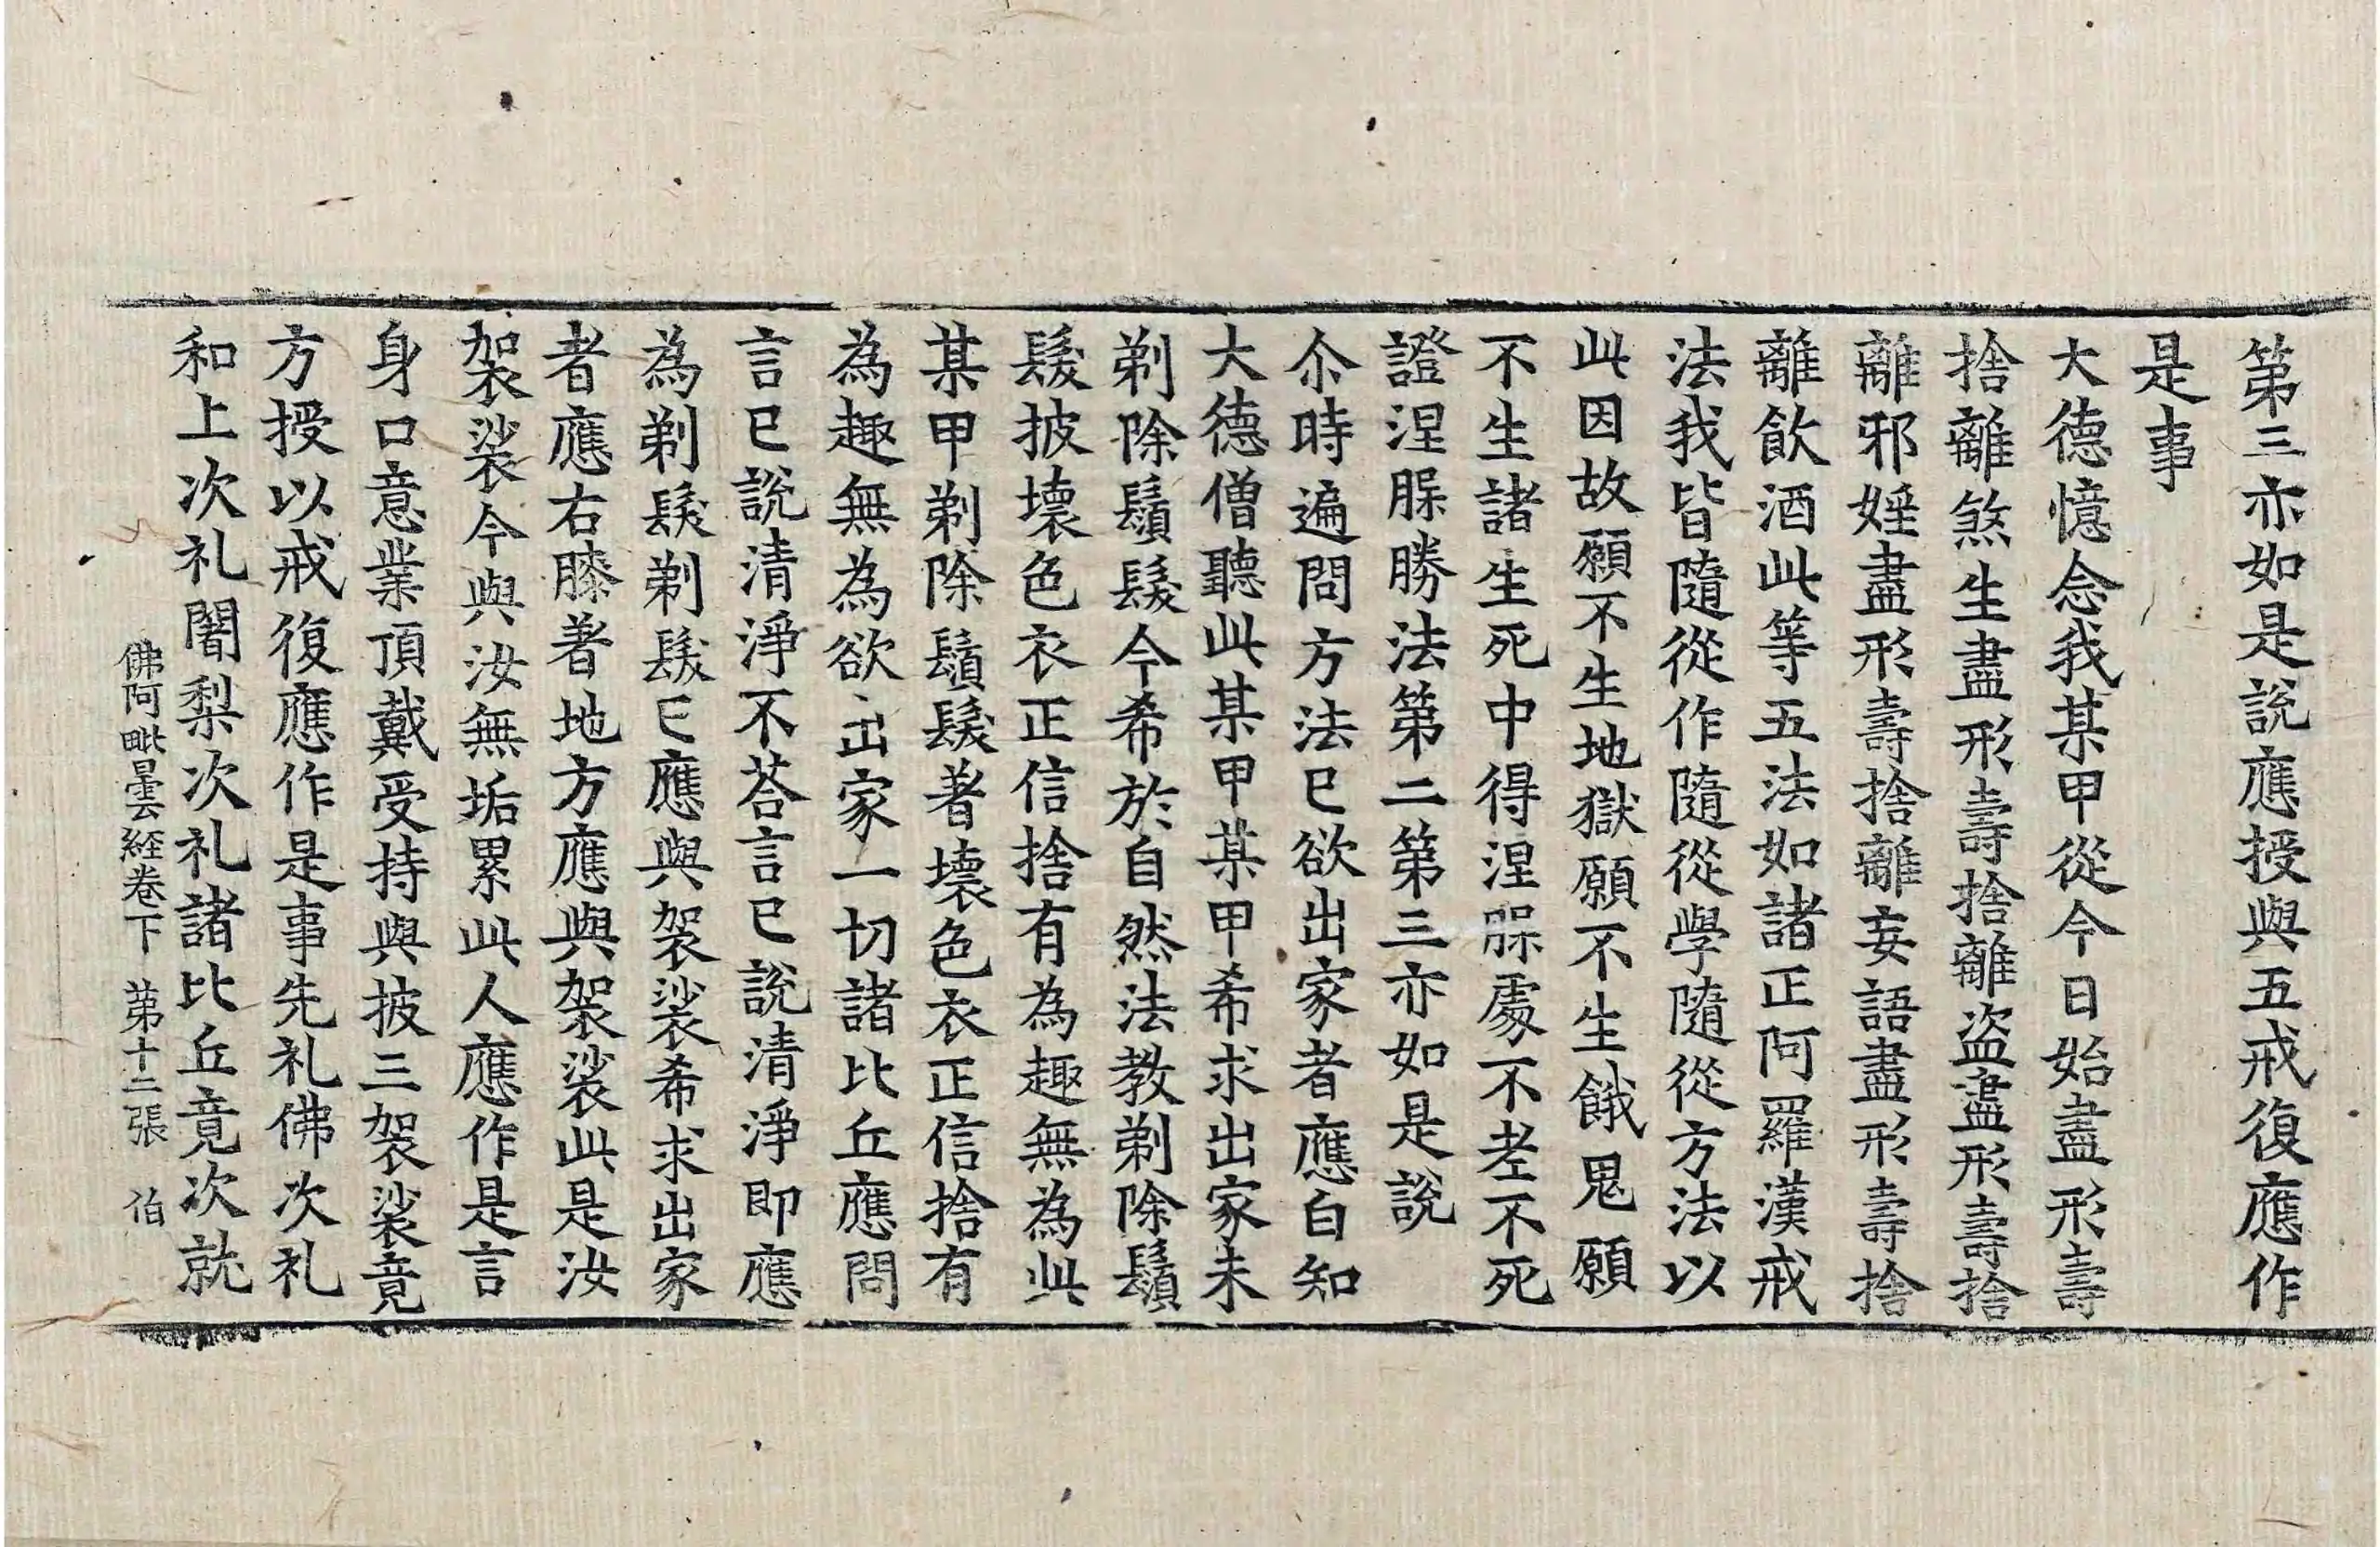 第三亦如是說應授與五戒復應作
是事
大德憶念我某甲從今日始盡形壽
捨離煞生盡形壽捨離盗盡形壽捨
離邪婬盡形壽捨離妄語盡形壽捨
離飲酒此等五法如諸正阿羅漢戒
法我皆隨從作隨從學隨從方法以
此因故願不生地獄願不生餓鬼願
不生諸生死中得涅槃處不老不死
證涅槃勝法第二第三亦如是說
尒時遍問方法已欲出家者應白知
大德僧聽此某甲某甲希求出家未
剃除鬚髮今希於自然法教剃除鬚
髮披壞色衣正信捨有為趣無為此
某甲剃除鬚髮著壞色衣正信捨有
為趣無為欲出家一切諸比丘應問
言已說清淨不荅言已說清淨即應
為剃髮剃髮已應與袈裟希求出家
者應右膝著地方應與袈裟此是汝
袈裟今與汝無垢累此人應作是言
身口意業頂戴受持與披三袈裟竟
方授以戒復應作是事先礼佛次礼
和上次礼闍梨次礼諸比丘竟次就
佛阿毗曇経卷下 第十二張 伯